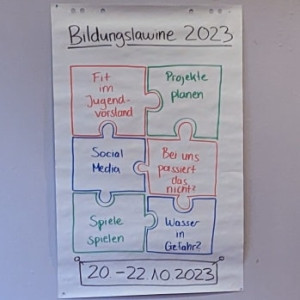 Bildungslawine 2023
Fit
im
Jugend-
vorstand
Projekte
planen
Social
Media
Bei uns
passiert
das
nicht?
Spiele
spielen
Wasser
in
Gefahr?
20 - 22.10 2023